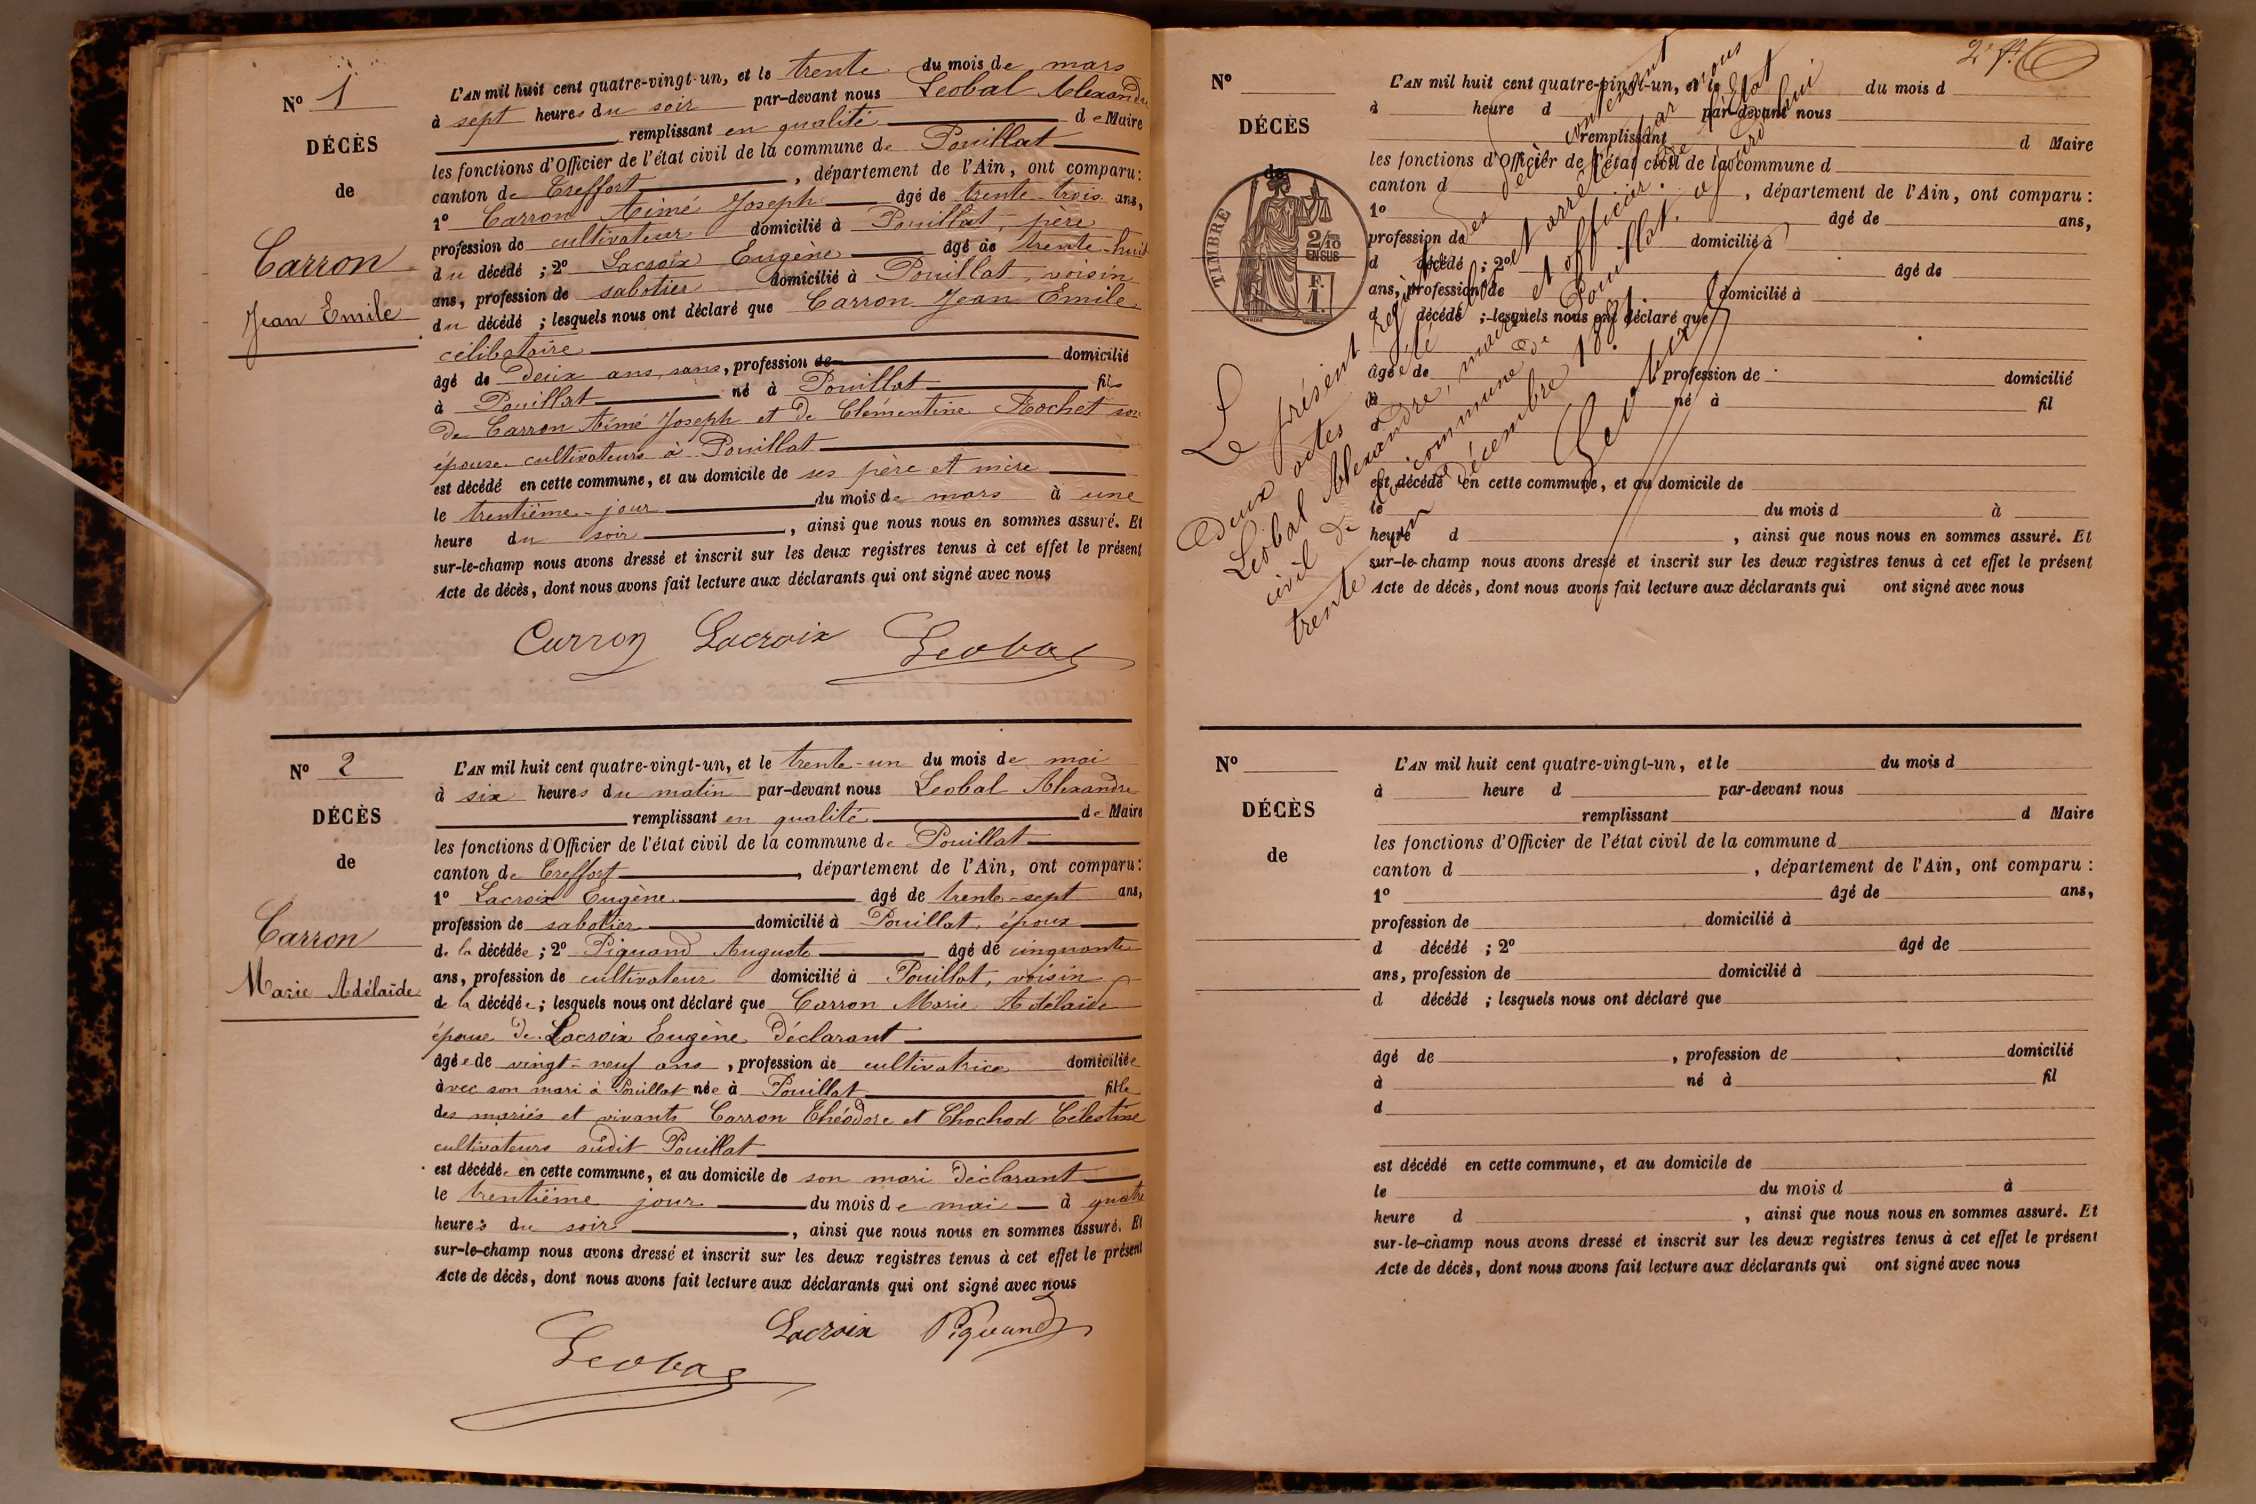 Nº 1
DÉCÈS
de
Carron
Jean Emile
L'AN mil huit cent quatre-vingt-un, et le trente du mois de mars
à sept heures du soir par-devant nous Leobal Alexandre
remplissant en qualité de Maire
les fonctions d'Officier de l'état civil de la commune de Pouillat
canton de Treffort, département de l'Ain, ont comparu:
1º Carron Aimé Joseph âgé de trente-trois ans,
profession de cultivateur domicilié à Pouillat, père
du décédé ; 2º Lacroix Eugène âgé de trente-huit
ans, profession de sabotier domicilié à Pouillat, voisin
du décédé ; lesquels nous ont déclaré que Carron Jean Emile
célibataire
âgé de deux ans, sans, profession de domicilié
à Pouillat né à Pouillat fils
de Carron Aimé Joseph et de Clémentine Rochet son
épouse cultivateurs à Pouillat
est décédé en cette commune, et au domicile de ses père et mère
le trentième jour du mois de mars à une
heure du soir, ainsi que nous nous en sommes assuré. Et
sur-le-champ nous avons dressé et inscrit sur les deux registres tenus à cet effet le présent
Acte de décès, dont nous avons fait lecture aux déclarants qui ont signé avec nous
Carron Lacroix Leobal
Nº 2
DÉCÈS
de
Carron
Marie Adélaïde
L'AN mil huit cent quatre-vingt-un, et le trente-un du mois de mai
à six heures du matin par-devant nous Leobal Alexandre
remplissant en qualité de Maire
les fonctions d'Officier de l'état civil de la commune de Pouillat
canton de Treffort, département de l'Ain, ont comparu:
1º Lacroix Eugène âgé de trente-sept ans,
profession de sabotier domicilié à Pouillat, époux
de la décédée ; 2º Piquand Auguste âgé de cinquante
ans, profession de cultivateur domicilié à Pouillat, voisin
de la décédée ; lesquels nous ont déclaré que Carron Marie Adélaïde
épouse de Lacroix Eugène déclarant
âgée de vingt-neuf ans, profession de cultivatrice domiciliée
avec son mari à Pouillat née à Pouillat fille
des mariés et vivants Carron Théodore et Chochod Célestine
cultivateurs sudit Pouillat
est décédée en cette commune, et au domicile de son mari déclarant
le trentième jour du mois de mai à quatre
heures du soir, ainsi que nous nous en sommes assuré. Et
sur-le-champ nous avons dressé et inscrit sur les deux registres tenus à cet effet le présent
Acte de décès, dont nous avons fait lecture aux déclarants qui ont signé avec nous
Lacroix Piquand
Leobal
2e f.
Nº
DÉCÈS
de
TIMBRE
2/10
EN SUS
F.
1.
L'AN mil huit cent quatre-vingt-un, et le du mois d
à heure d par-devant nous
remplissant d Maire
les fonctions d'Officier de l'état civil de la commune d
canton d , département de l'Ain, ont comparu :
1º âgé de ans,
profession de domicilié à
d décédé ; 2º âgé de
ans, profession de domicilié à
d décédé ; lesquels nous ont déclaré que
âgé de , profession de domicilié
à né à fil
d
est décédé en cette commune, et au domicile de
le du mois d à
heure d , ainsi que nous nous en sommes assuré. Et
sur-le-champ nous avons dressé et inscrit sur les deux registres tenus à cet effet le présent
Acte de décès, dont nous avons fait lecture aux déclarants qui ont signé avec nous
Le présent registre des décès contenant
deux actes a été clos et arrêté par nous
Leobal Alexandre, maire et officier de l'état
civil de la commune de Pouillat aujourd'hui
trente un décembre 1881.
Leobal
Nº
DÉCÈS
de
L'AN mil huit cent quatre-vingt-un, et le du mois d
à heure d par-devant nous
remplissant d Maire
les fonctions d'Officier de l'état civil de la commune d
canton d , département de l'Ain, ont comparu :
1º âgé de ans,
profession de domicilié à
d décédé ; 2º âgé de
ans, profession de domicilié à
d décédé ; lesquels nous ont déclaré que
âgé de , profession de domicilié
à né à fil
d
est décédé en cette commune, et au domicile de
le du mois d à
heure d , ainsi que nous nous en sommes assuré. Et
sur-le-champ nous avons dressé et inscrit sur les deux registres tenus à cet effet le présent
Acte de décès, dont nous avons fait lecture aux déclarants qui ont signé avec nous